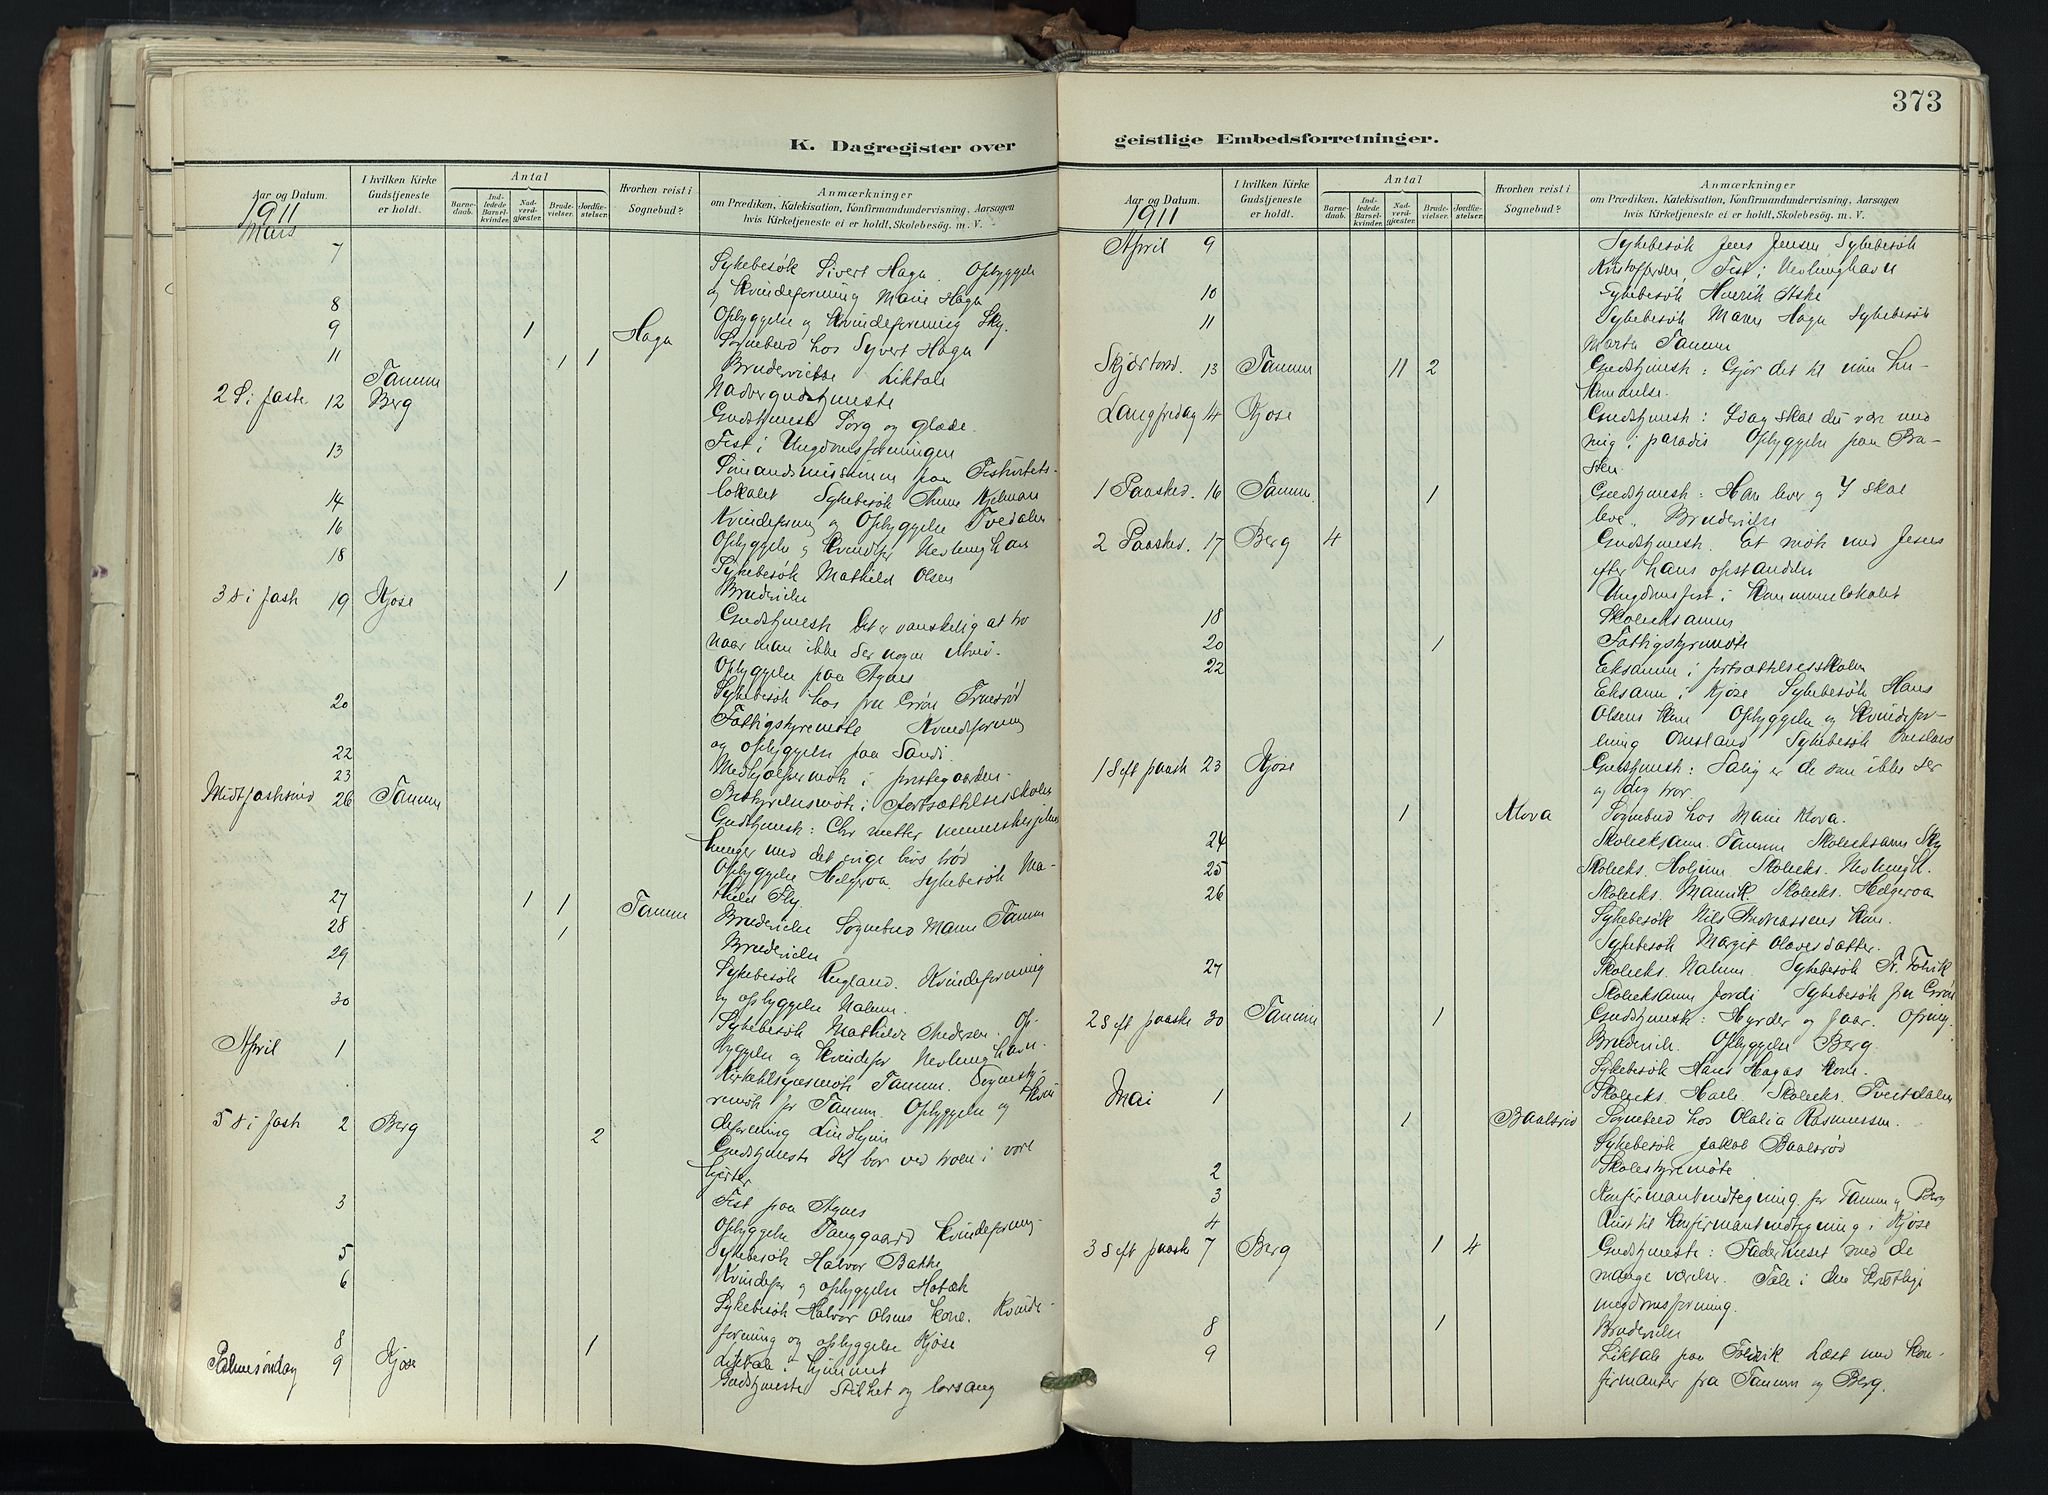 373
K. Dagregister over
geistlige Embedsforretninger.
Aar og Datum.
I hvilken Kirke Gudstjeneste er holdt.
Antal
Barne-daab.
Ind-ledede Barsel-kvinder.
Nad-verd-gjæster.
Brude-vielser.
Jordfæ-stelser.
Hvorhen reist i Sognebud?
Anmærkninger
om Prædiken, Katekisation, Konfirmandundervisning, Aarsagen
hvis Kirketjeneste ei er holdt, Skolebesög. m. V.
1911
Mars
7 Sykebesök Sivert Haga. Opbyggelse
og Kvindeforening Marie Haga
8 Opbyggelse og Kvindeforening Sky.
9 1 Haga Sognebud hos Syvert Haga
11 1 1 Brudevielse Liktale
Tanum Nadvergudstjeneste
2 S. i faste 12 Berg Gudstjeneste Sorg og glæde.
Fest i Ungdomsforeningen
13 Sömandsmissionen paa Festivitets-
lokalet Sykebesök
14 Kvindeforening og Opbyggelse Tvedalen
16 Opbyggelse og Kvindefor Nevlunghavn
18 Sykebesök Mathilde Olsen
1 Brudevielse
3 S i fast 19 Kjose Gudstjeneste Det er vanskelig at tro
naar man ikke ser nogen utvei.
Opbyggelse paa Agnes
20 Sykebesök hos fru
Fattigstyremöte Kvindeforening
og opbyggelse paa Sandö.
22 Medhjælpermöte i prestegaarden.
23 Bestyrelsesmöte i fortsættelsesskolen
Midtfastesönd 26 Tanum Gudstjeneste: Chr mætter menneskesjelens
hunger med det evige livs bröd
Opbyggelse Helgeroa. Sykebesök Ma-
thilde
27 1 1 Tanum Brudevielse Sognebud Maren Tanum
28 1 Brudevielse
29 Sykebesök Kvindeforening
og opbyggelse Nalum.
30 Sykebesök Mathilde Andersen. Op-
byggelse og Kvindefor Nevlunghavn.
April 1 Kirketilsynsmöte Tanum.
möte for Tanum. Opbyggelse og Kvin
deforening Lindhjem
5 S i fast 2 Berg 2 Gudstjeneste Kr bor ved troen i vore
hjerter
3 Fest paa Agnes
Opbyggelse Tanggaard Kvindeforening.
5 Sykebesök Halvor Bakke
6 Kvindefor og opbyggelse Holbæk
Sykebesök Halvor Olsens kone. Kvinde-
8 forening og opbyggelse Kjose
Palmesöndag 9 Kjose 1 Liktale i hjemmet
Gudstjeneste Stilhet og lovsang
1911
April 9 Sykebesök Jens Jensen Sykebesök
Kristoffersen. Fest i Nevlunghavn
10 Sykebesök Henrik Aske
11 Sykebesök Maren Haga Sykebesök
Marta Tanum
Skjærtorsd. 13 Tanum 11 2 Gudstjeneste: Gjör det til min ihu-
kommelse.
Langfredag 14 Kjose Gudstjeneste: Idag skal du være med
mig i paradis Opbyggelse paa Ba-
støen
1 Paasked. 16 Tanum. 1 Gudstjeneste: Han lever og I skal
leve. Brudevielse
2 Paasked. 17 Berg 4 Gudstjeneste. Et möte med Jesus
efter hans opstandelse
Ungdomsfest i Kommunelokalet
18 Skoleeksamen
20 1 Fattigstyremöte
22 Eksamen i fortsættelsesskolen
Eksamen i Kjose Sykebesök Hans
Olsens kone Opbyggelse og Kvindefor-
ening Omsland Sykebesök Omsland
1 S eft paaske 23 Kjose Gudstjeneste: Salig er de som ikke ser
og dog tror.
1 Klova Sognebud hos Marie Klova.
24 Skoleeksamen Tanum Skoleeksamen Sky
25 Skoleeks. Skoleeks. Nevlungh.
26 Skoleeks. Manvik Skoleeks. Helgeroa
Sykebesök Nils Andreassens kone.
Sykebesök Margit Olavesdatter.
27 Skoleeks. Nalum. Sykebesök
Skoleeksamen Jordi Sykebesök fru
2 S eft paaske 30 Tanum 1 Gudstjeneste: Hyrder og faar.
Brudeviels. Opbyggelse Berg.
Sykebesök Hans Hagas kone.
Mai 1 Skoleeks. Skoleeks. Tveidalen
1 Baalsröd Sognebud hos Olalia Rasmussen.
Sykebesök Jakob Baalsröd
2 Skolestyremöte
3 Konfirmantindtegning for Tanum og Berg
4 Reist til Konfirmantindtegning i Kjose
3 S eft paaske 7 Berg 1 4 Gudstjeneste: Faderhuset med de
mange værelser. Tale i den Kristelige
ungdomsforening.
8 1 Brudevielse
9 Liktale paa Læst med kon-
firmanter fra Tanum og Berg.